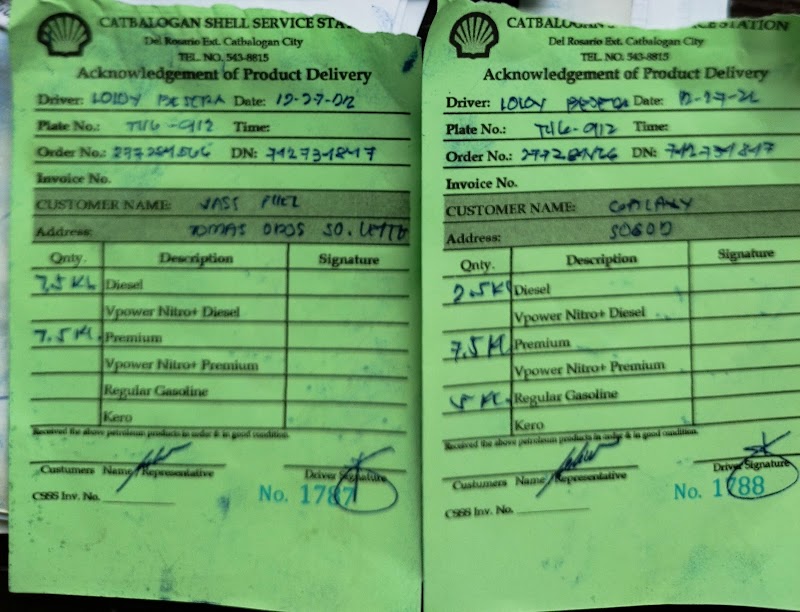 CATBALOGAN SHELL SERVICE STA
Del Rosario Ext. Catbalogan City
TEL. NO. 543-8815
Acknowledgement of Product Delivery
Driver: LOLOY Date:
Plate No.: Time:
Order No.: DN: 7127731847
Invoice No.
CUSTOMER NAME: JASS FUEL
Address: TOMAS OPOS SO. LEYTE
Qnty. Description Signature
7.5 KL Diesel
Vpower Nitro+ Diesel
7.5 KL Premium
Vpower Nitro+ Premium
Regular Gasoline
Kero
Received the above petroleum products in order & in good condition.
Custumers Name / Representative
Driver Signature
CSSS Inv. No.
No. 1787
CATBALOGAN SERVICE STATION
Del Rosario Ext. Catbalogan City
TEL. NO. 543-8815
Acknowledgement of Product Delivery
Driver: LOLOY Date:
Plate No.: Time:
Order No.: DN:
Invoice No.
CUSTOMER NAME:
Address: SOGOD
Qnty. Description Signature
2.5 KL Diesel
Vpower Nitro+ Diesel
7.5 KL Premium
Vpower Nitro+ Premium
Regular Gasoline
Kero
Received the above petroleum products in order & in good condition.
Custumers Name / Representative
Driver Signature
CSSS Inv. No.
No. 1788